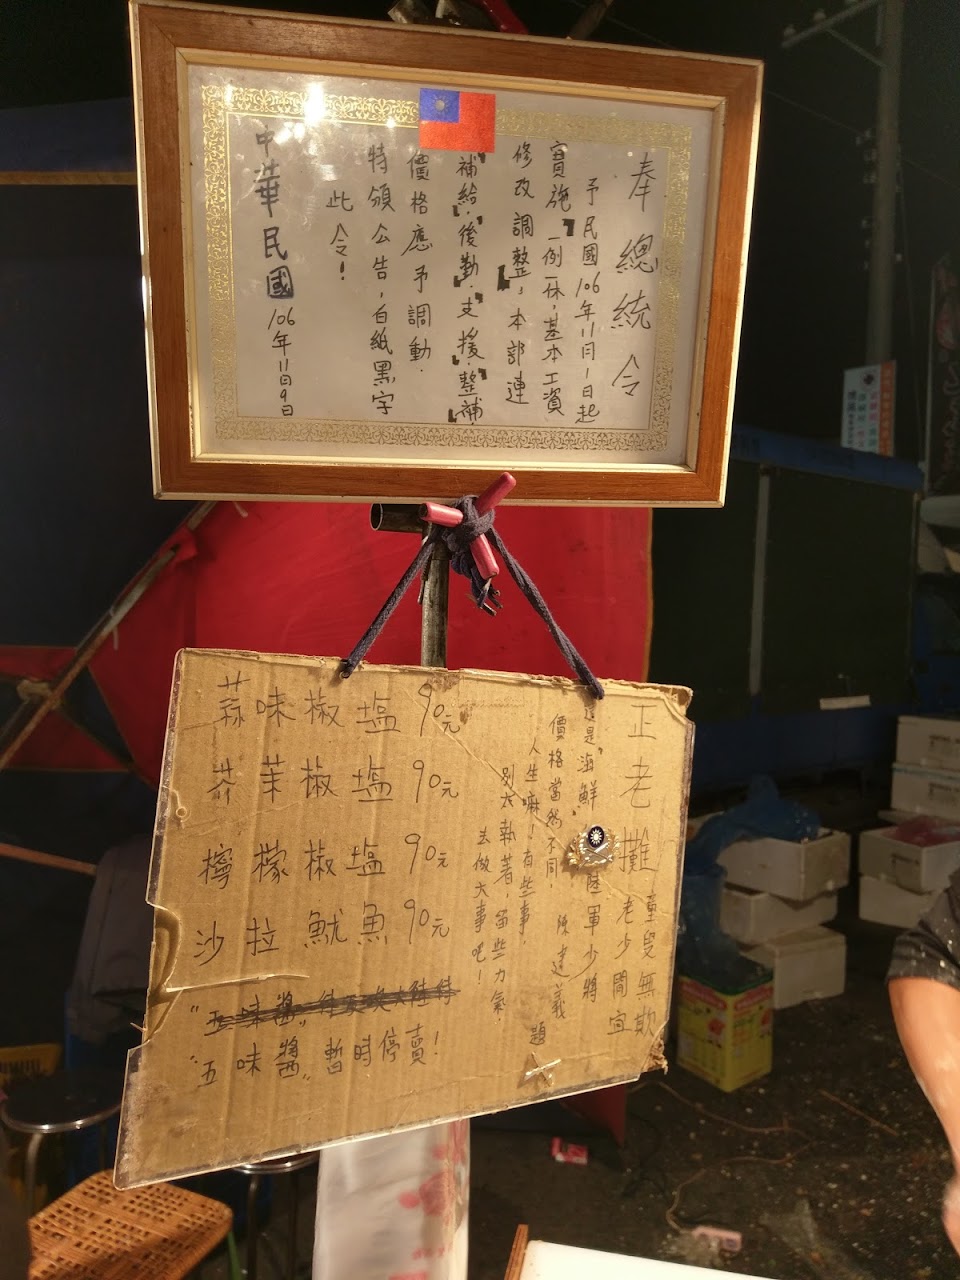 奉總統令
予民國106年11月1日起
實施「一例一休，基本工資
修改調整」，本部連
「補給」「後勤」「支援」「整補」
價格應予調動．
特頒公告，白紙黑字
此令！
中華民國106年11月9日
正老攤 童叟無欺
老少閤宜
這是"海鮮" 陸軍少將
價格當然不同． 陳達義 題
人生嘛！有些事．
別太執著，留些力氣．
去做大事吧！
蒜味椒塩 90元
芥茉椒塩 90元
檸檬椒塩 90元
沙拉魷魚 90元
"五味醬"
"五味醬"暫時停賣！